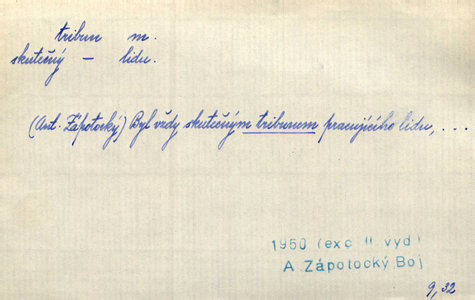 tribun m.
skutečný – lidu.
(Ant. Zápotocký) Byl vždy skutečným tribunem pracujícího lidu, ...
1950 (exc II vyd)
A Zápotocký Boj
9, 32